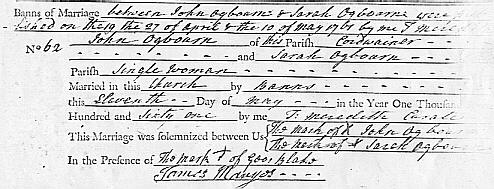 Banns of Marriage between John Ogbourn & Sarah Ogbourn were
lished on the 19 the 27 of april & the 10 of may 1761 by me T Mere
No 62 John Ogbourn of this Parish Cordwainer
and Sarah Ogbourn
Parish Single woman
Married in this Church by Banns
this Eleventh Day of may in the Year One Thousand
Hundred and Sixty one by me T. Meredith Curate
This Marriage was solemnized between Us The mark of X John Ogbou
The mark of X Sarah Ogbou
In the Presence of The mark + of Geor Blake
James